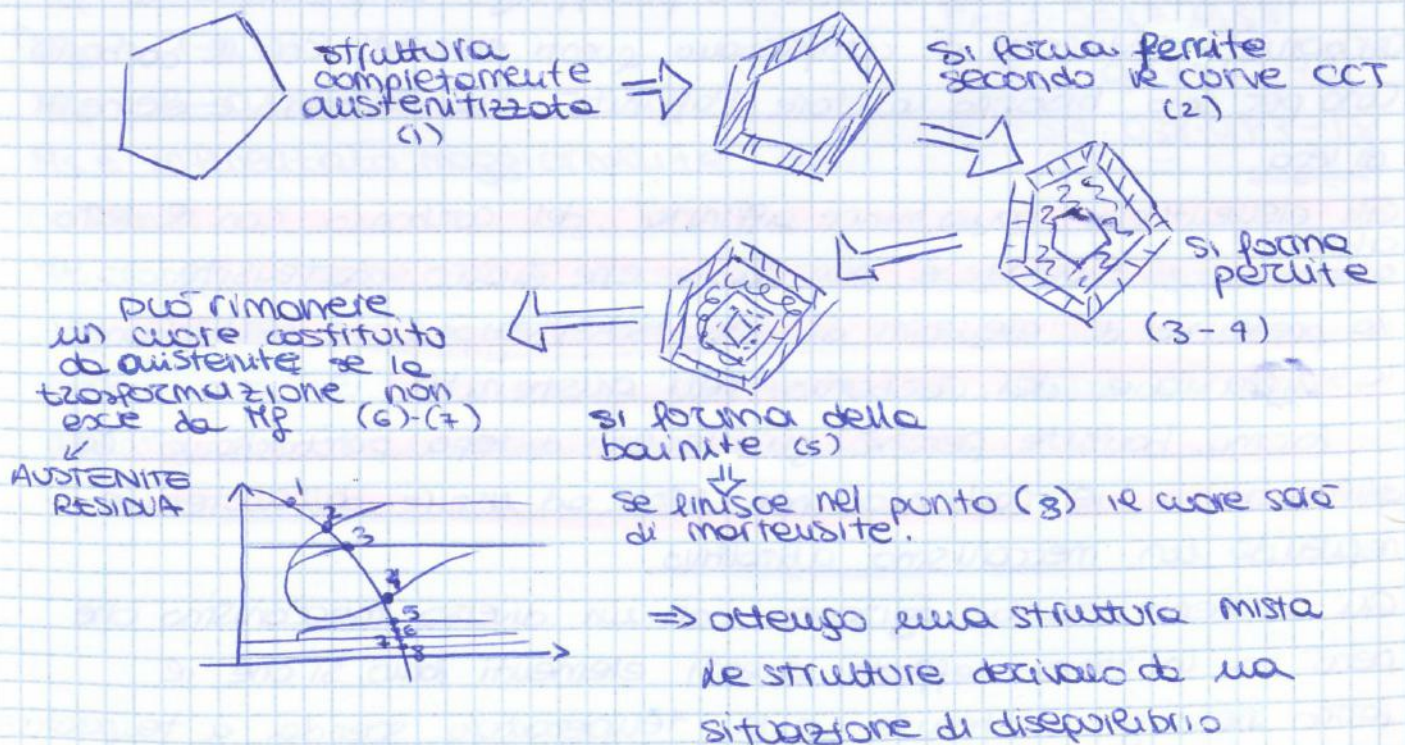 struttura
completamente
austenitizzata
(1)
si forma ferrite
secondo le curve CCT
(2)
si forma
perlite
(3-4)
si forma della
bainite (5)
se finisce nel punto (8) il cuore sarà
di martensite.
può rimanere
un cuore costituito
da austenite se la
trasformazione non
esce da Mf (6)-(7)
AUSTENITE
RESIDUA
1
2
3
4
5
6
7
8
=> ottengo una struttura mista
le strutture derivano da una
situazione di disequilibrio